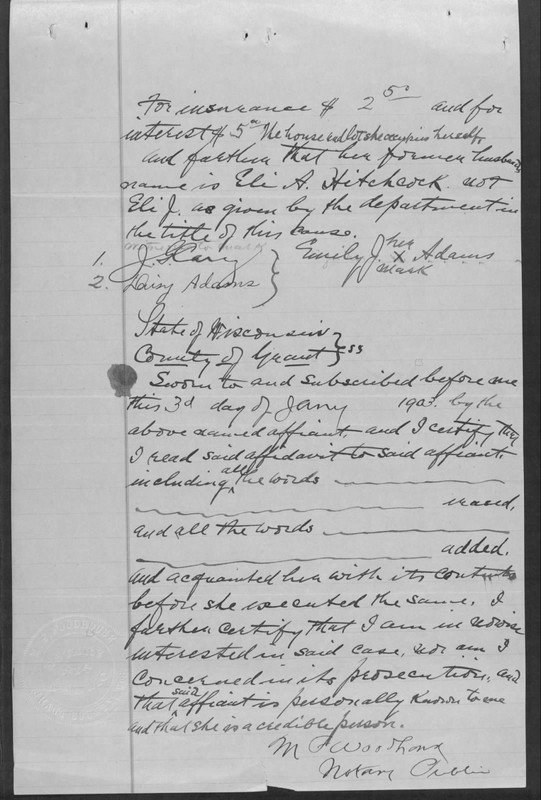 For insurance $ 2 50 and for
interest $ 5 00 the house and lot she occupies herself,
and further that her former husbands
name is Eli A. Hitchcock not
Eli J. as given by the department in
the title of this cause.
to mark
her
1. Emily J. X Adams
2. Daisy Adams } mark
State of Wisconsin }
County of Grant } ss
Sworn to and subscribed before me
this 3d day of Jany 1903. by the
above named affiant, and I certify that
I read said affidavit to said affiant,
including all the words
erased,
and all the words
added.
and acquainted her with its contents
before she executed the same. I
further certify that I am in nowise
interested in said case, nor am I
concerned in its prosecution, and
that said affiant is personally known to me
and that she is a credible person.
M
Notary Public